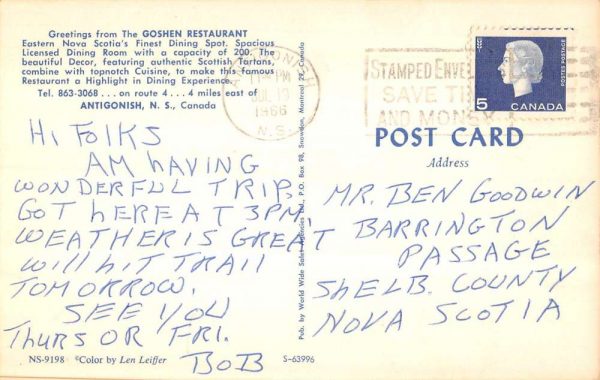 Greetings from The GOSHEN RESTAURANT
Eastern Nova Scotia's Finest Dining Spot. Spacious
Licensed Dining Room with a capacity of 200. The
beautiful Decor, featuring authentic Scottish Tartans,
combine with topnotch Cuisine, to make this famous
Restaurant a Highlight in Dining Experience.
Tel. 863-3068 . . . on route 4 . . . 4 miles east of
ANTIGONISH, N. S., Canada
HI FOLKS
AM HAVING
WONDERFUL TRIP.
GOT HERE AT 3PM.
WEATHER IS GREAT
WILL HIT TRAIL
TOMORROW.
SEE YOU
THURS OR FRI.
BOB
NS-9198 ©Color by Len Leiffer
S-63996
Pub. by World Wide Sales Agencies Ltd., P.O. Box 98, Snowdon, Montreal 29, Canada
PM
1966
N.S.
STAMPED ENVEL
SAVE TI
AND MONEY
POSTES POSTAGE
5
CANADA
POST CARD
Address
MR. BEN GOODWIN
BARRINGTON
PASSAGE
SHELB. COUNTY
NOVA SCOTIA